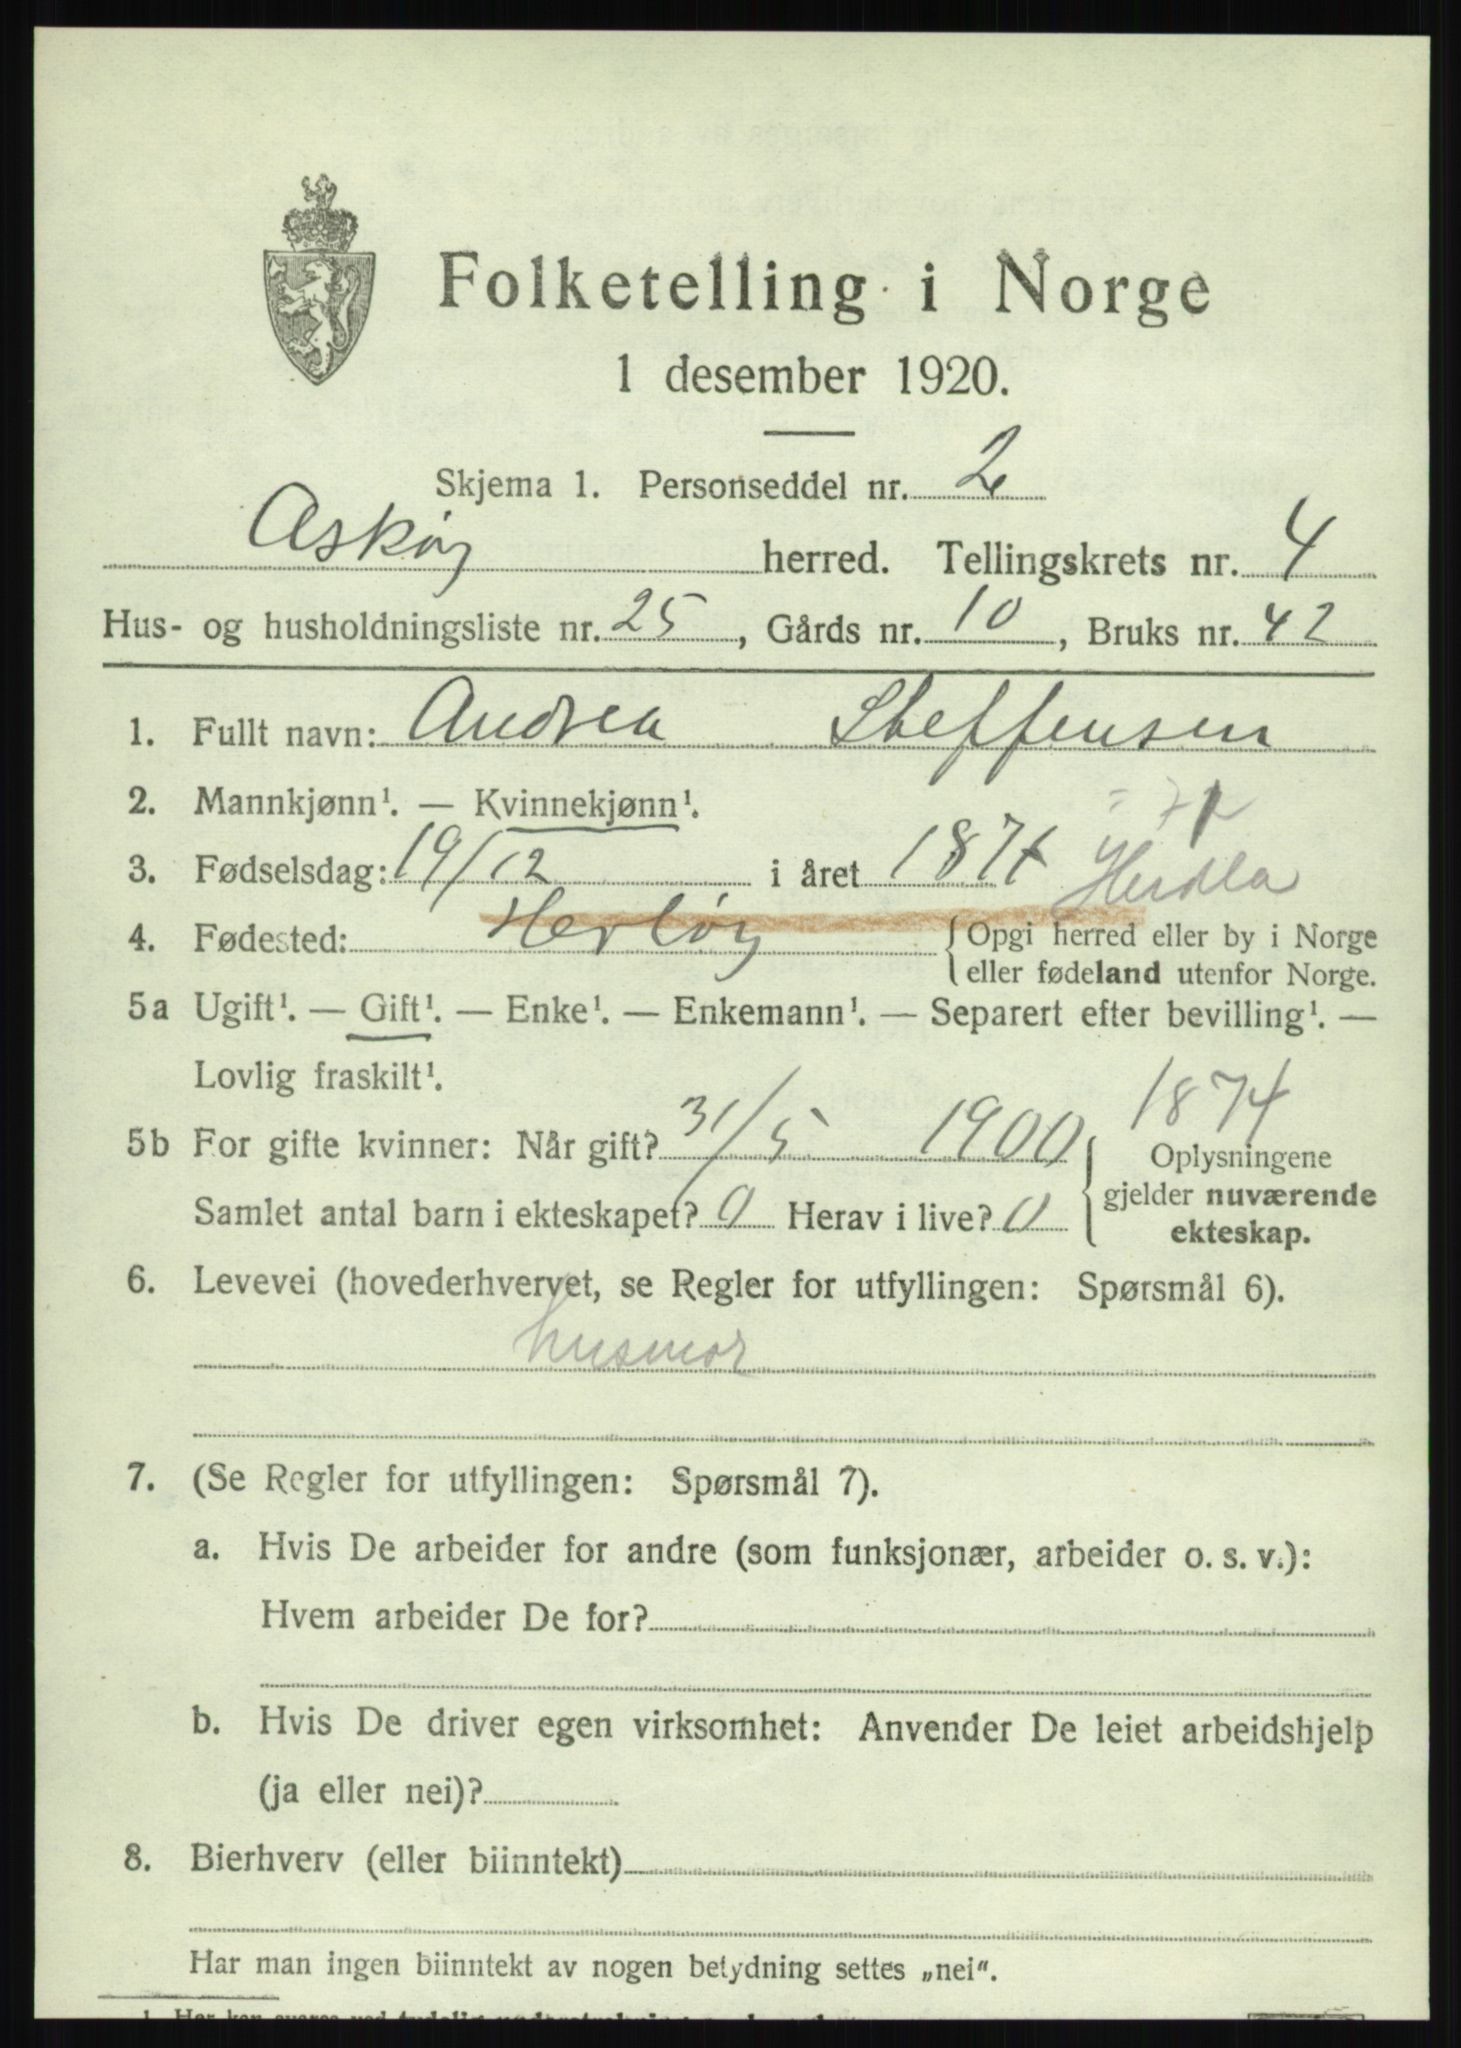 Folketelling i Norge
1 desember 1920.
Skjema 1. Personseddel nr. 2
Askøy herred. Tellingskrets nr. 4
Hus- og husholdningsliste nr. 25, Gårds nr. 10, Bruks nr. 42
1. Fullt navn: Andrea Steffensen
2. Mannkjønn¹. — Kvinnekjønn¹.
3. Fødselsdag: 19/12 i året 1874
Herdla
4. Fødested: Herløy {Opgi herred eller by i Norge
eller fødeland utenfor Norge.
5a Ugift¹. — Gift¹. — Enke¹. — Enkemann¹. — Separert efter bevilling¹. —
Lovlig fraskilt¹.
1874
5b For gifte kvinner: Når gift? 31/5 1900 { Oplysningene
gjelder nuværende
Samlet antal barn i ekteskapet? 0 Herav i live? 0 ekteskap.
6. Levevei (hovederhvervet, se Regler for utfyllingen: Spørsmål 6).
husmor
7. (Se Regler for utfyllingen: Spørsmål 7).
a. Hvis De arbeider for andre (som funksjonær, arbeider o. s. v.):
Hvem arbeider De for?
b. Hvis De driver egen virksomhet: Anvender De leiet arbeidshjelp
(ja eller nei)?
8. Bierhverv (eller biinntekt)
Har man ingen biinntekt av nogen betydning settes „nei“.